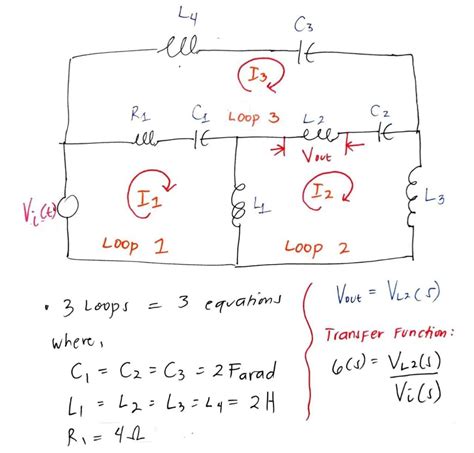 L4
C3
I3
R1
C1
LOOP 3
L2
C2
Vout
Vi(t)
I1
L1
I2
L3
LOOP 1
LOOP 2
• 3 Loops = 3 equations
where,
C1 = C2 = C3 = 2 Farad
L1 = L2 = L3 = L4 = 2H
R1 = 4Ω
Vout = VL2(s)
Transfer Function:
G(s) = VL2(s)
Vi(s)